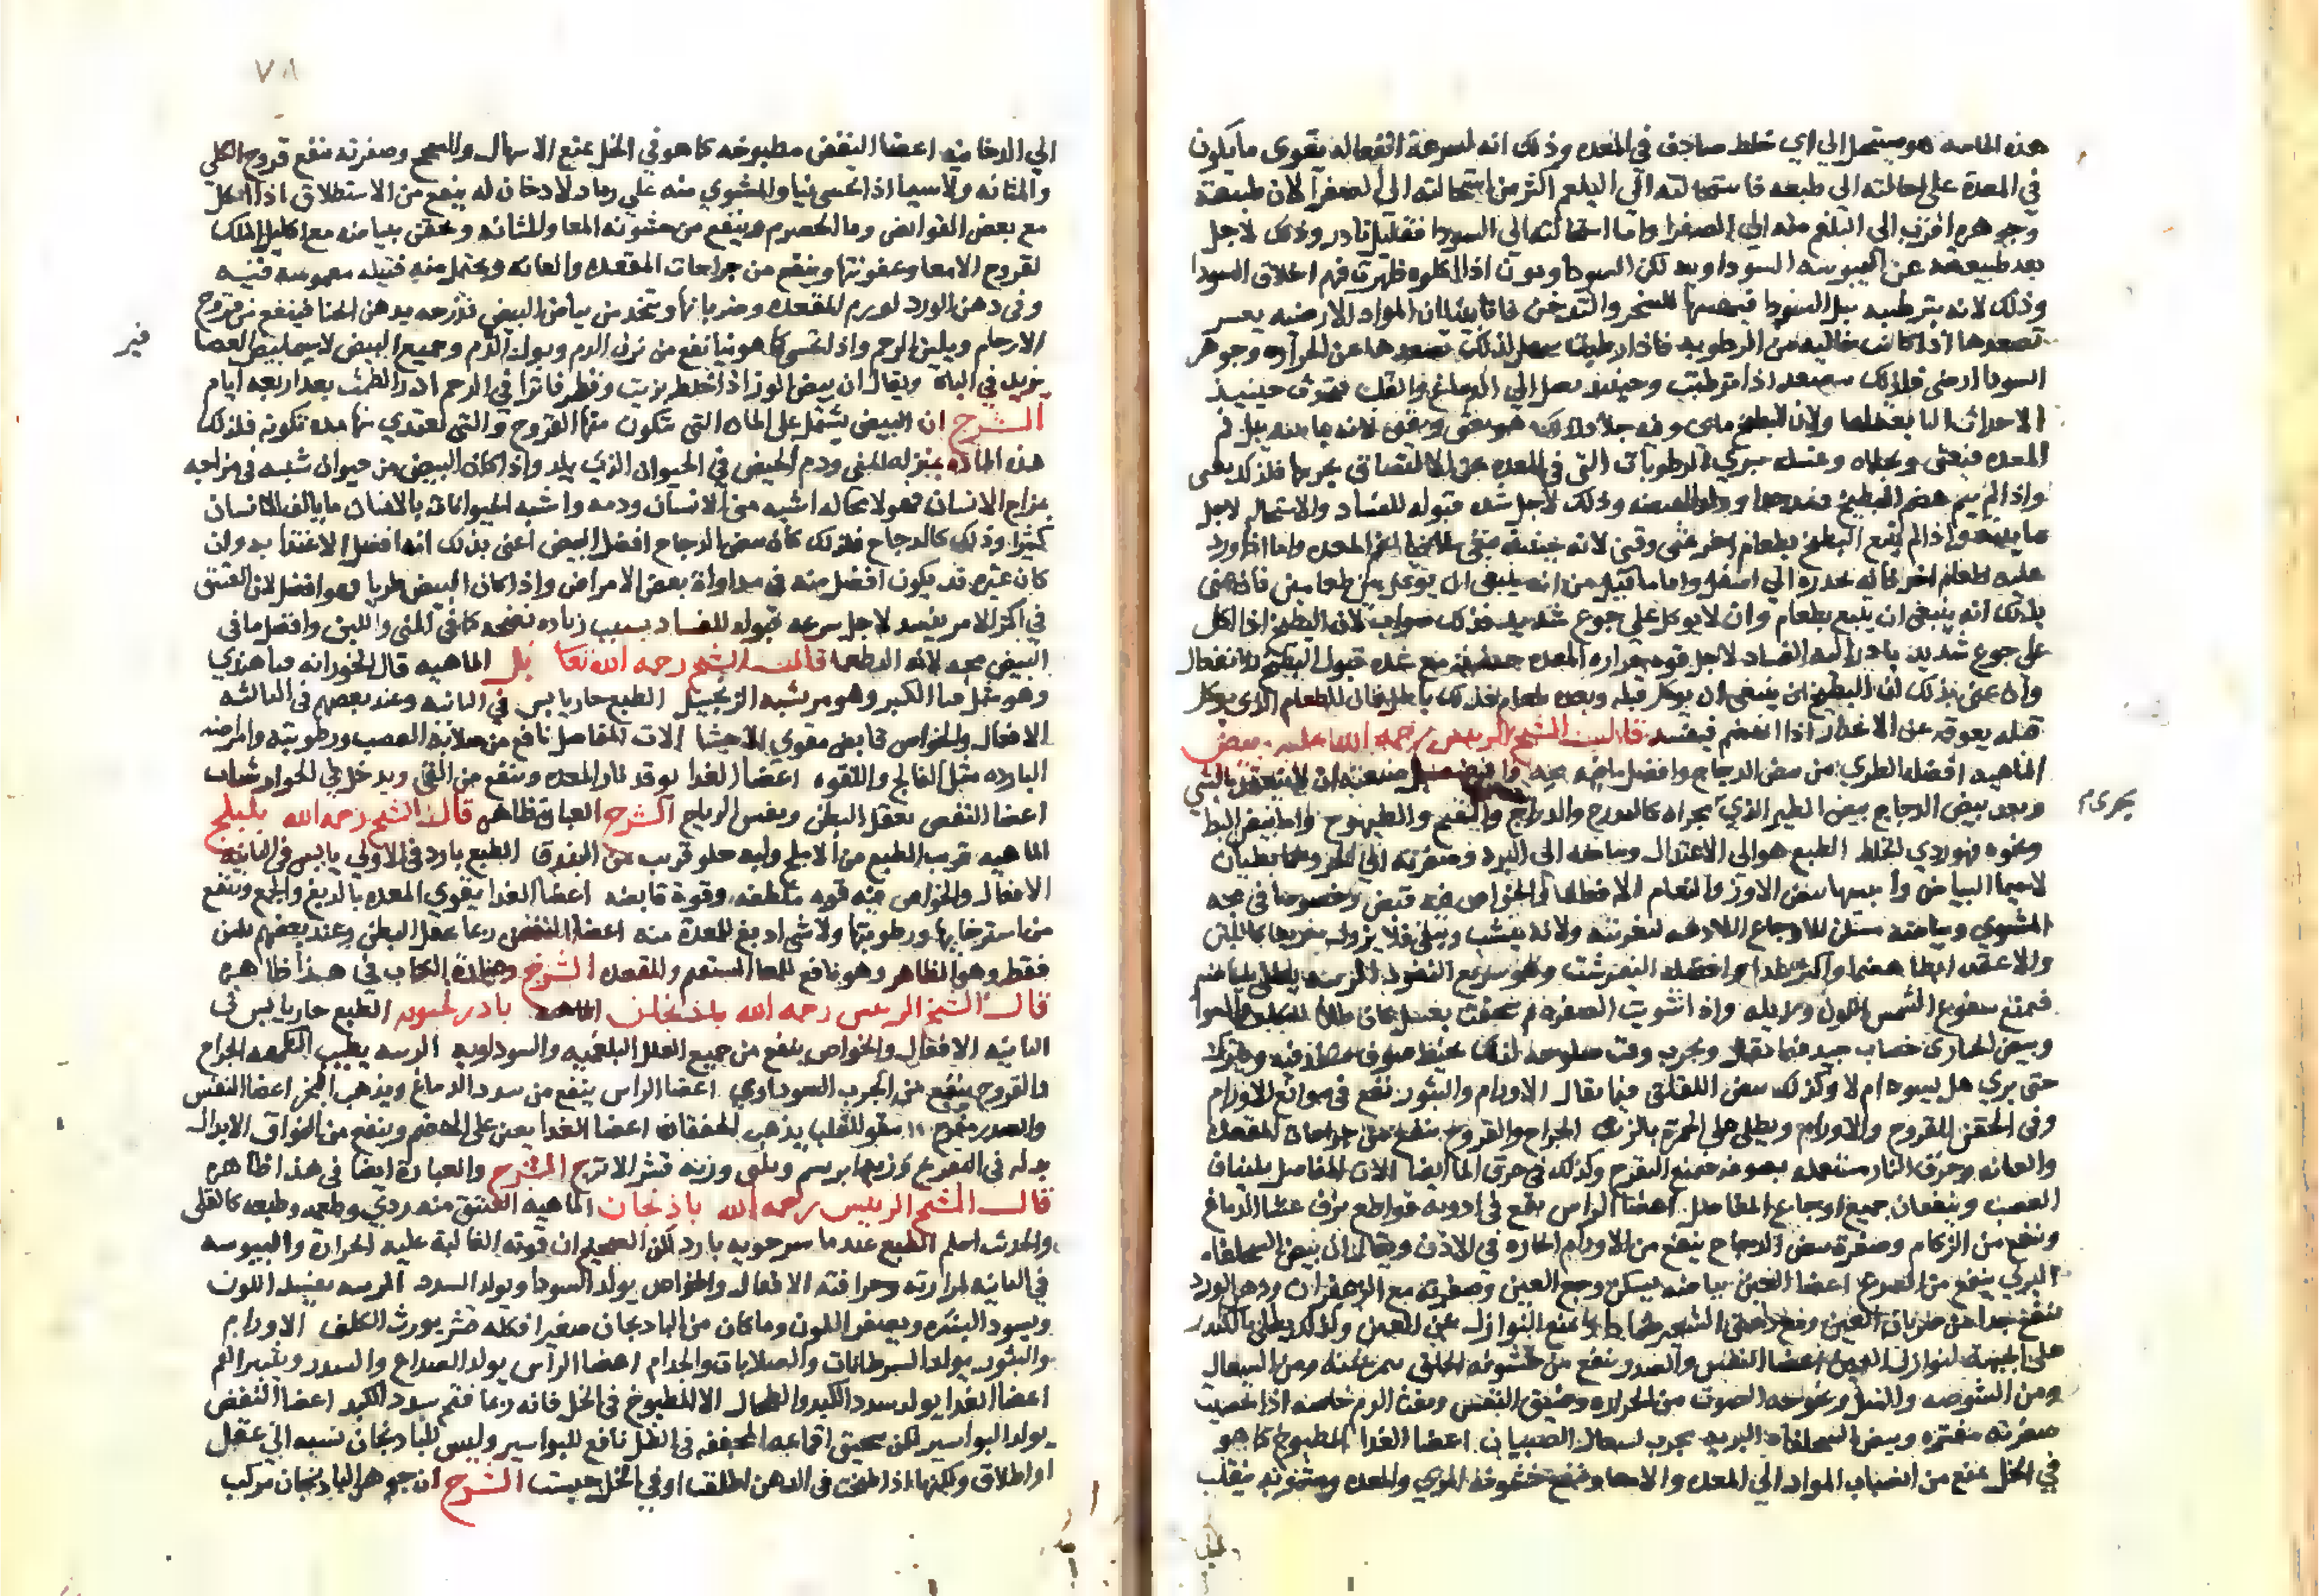 هذه الخاصه هو مستحيل الي اي خلط صادف في المعده وذلك انه لسرعة انفعاله يقوى ما يكون
في المعدة على احالته الي طبعه فاستحالته الى البلغم اكثر من استحالته الى الصفرآ لان طبيعته
وجوهره اقرب الى البلغم منه الى الصفرا واما استحالته الى السودا فقليل نادر وذلك لاجل
بعد طبيعته عن اليبوسه السوداويه لكن السوداويون اذا اكلوه ظهرت فيهم اخلاق السودا
وذلك لانه بترطيبه يبل السودا فيهيئها للتبخر والتدخن فانا بينا ان المواد الارضيه يعسر
تصعدها اذا كانت خاليه من الرطوبه فاذا رطبت سهل لذلك تصعدها عن الحرآره وجوهر
السودا ارضى فلذلك يتصعد اذا ترطبت وحينئذ يصل الي الدماغ والقلب فتحدث حينيذ
الاحداث التابعه لها ولان البطيخ مايى وفيه جلا ولذلك هو يغثى ويقيى لانه بمايته يبل فم
المعده فيغثى وبجلاه وغسله يبري الرطوبات التى في المعده عن الالتصاق بجرمها فلذلك يقيى
واذا لم يتم هضم البطيخ وذلك لاجل شده قبوله للفساد والاستحاله لاجل
مايته واذا لم يتبع البطيخ بطعام اخر غثى وقيى لانه حينئذ يبقى ملاقيا لفم المعده واما اذا ورد
عليه طعام اخر فانه يحدره الي اسفل واما ما قيل من انه ينبغى ان يوكل بين طعامين فان عنى
بذلك انه ينبغى ان يتبع بطعام وان لا يوكل على جوع شديد فذلك صواب لان البطيخ اذا اكل
على جوع شديد بادر اليه الفساد لاجل قوه حراره المعده حينئذ مع شده قبول البطيخ للانفعال
وان عنى بذلك ان البطيخ ينبغى ان يوكل قبله وبعده طعام فذلك باطل فان الطعام الذي يوكل
قبله يعوقه عن الانحدار اذا انهضم فيفسد قال الشيخ الرييس رحمة الله عليه بيض
الماهيه افضله الطري من بيض الدجاج وافضل ما فيه محه وافضل صنعته ان لا ينعقد بالشي
وبعد بيض الدجاج بيض الطير الذي يجراه كالتدرج والدراج والقبج والطيهوج واما بيض البط
ونحوه فهو ردي الخلط الطبع هو الى الاعتدال وبياضه الى البرد وصفرته الى الحر وهما رطبان
لاسيما البياض وايبسها بيض الاوز والنعام الافعال والخواص فيه قبض وخصوصا في محه
المشوي وبياضه مسكن للاوجاع اللاذعه لتغريته ولانه ينشب ويبقى فلا يزول سريعا كاللبن
والاعقد ابطا هضما واكثر غذا وافضله النيمرشت وهو سريع النفوذ الزينه يطلى ببياضه
فيمنع سفوع الشمس اللون ويزيله واذا شويت الصفره ثم سحقت بعسل كان طلا للكلف والسواد
وبيض الحبارى خضاب جيد فيما يقال ويجرب وقت صلوحه لذلك بخيط صوف ينفذ فيه ويترك
حتى يري هل يسود ام لا وكذلك بيض اللقلق فيما يقال الاورام والبثور يقع فى موانع الاورام
وفي الحقن للقروح والاورام ويطلى على الحمرة بالزيت الجراح والقروح ينفع من جراحات المقعدة
والعانه وحرق النار يستعمله بصوفه فيمنع التقرح وكذلك في حرق الما ايضا الات المفاصل يلينان
العصب وينفعان جميع اوجاع المفاصل اعضا الراس يقع فى ادويه قواطع نزف غشا الدماغ
وينفع من الزكام وصفرة بيض الدجاج ينفع من الاورام الحاره فى الاذن ويقال ان بيض السلحفاه
البري ينفع من الصرع اعضا العين بياضه يسكن وجع العين وصفرته مع الزعفران ودهن الورد
ينفع جدا من ضربان العين ومع دقيق الشعير ضمادا يمنع النوازل عن العين وكذلك يطلى بالكندر
على الجبهه لنوازل العين اعضا النفس والصدر ينفع من خشونه الحلق بيمرشته ومن السعال
ومن الشوصه والسل وبحوحه الصوت من الحراره وضيق النفس ونفث الدم خاصه اذا تحسيت
صفرته مفتره وبيض السلحفاه البريه مجرب لسعال الصبيان اعضا الغدا المطبوخ كما هو
في الخل يمنع من انصباب المواد الي المعده والامعا وينفع خشونة المري والمعده ومشويه ينقلب
يجري
٧٨
الي الدخانيه اعضا النفض مطبوخه كما هو في الخل يمنع الاسهال والسحج وصفرته تنفع قروح الكلى
والمثانه ولاسيما اذا تحسى نيا والمشوي منه علي رماد لا دخان له ينفع من الاستطلاق اذا اكل
مع بعض القوابض وما الحصرم وينفع من خشونه المعا والمثانه ويحقن ببياضه مع اكليل الملك
لقروح الامعا وعفونتها وينفع من جراحات المقعده والعانه ويحتمل منه فتيله مغموسه فيه
وفي دهن الورد لورم المقعده وضربانها وتتخذ من بياض البيض فرزجه بدهن الحنا فينفع من قروح
الارحام ويلين الرحم واذا تحسى كما هو نيا نفع من نزف الدم وبول الدم وجميع البيض لاسيما بيض العصا
فير
يزيد في الباه ويقال ان بيض الوز اذا خلط بزيت وقطر فاترا في الرحم ادر الطمث بعد اربعه ايام
الشرح ان البيض يشتمل على الماده التى تتكون منها الفروج والتى تغتدي بها مده تكونه فلذلك
هذه الماده بمنزله المنى ودم الحيض في الحيوان الذي يلد واذا كان البيض من حيوان شبيه في مزاجه
بمزاج الانسان فهو لا محاله اشبه بمنى الانسان ودمه واشبه الحيوانات بالانسان ما يالف الانسان
كثيرا وذلك كالدجاج فلذلك كان بيض الدجاج افضل البيض اعنى بذلك انه افضل الاغتدا به وان
كان غيره قد يكون افضل منه في مداواة بعض الامراض واذا كان البيض طريا فهو افضل لان العتيق
في اكثر الامر يفسد لاجل سرعه قبوله للفساد بسبب زياده نضجه كما في المنى واللبن وافضل ما في
البيض محه لانه الدطعما قال الشيخ رحمه الله تعالى بل الماهيه قال الخوز انه قثا هندي
وهو مثل قثا الكبر وهو مر يشبه الزنجبيل الطبع حار يابس في الثانيه وعند بعضهم في الثالثه
الافعال والخواص قابض مقوي للاحشا الات المفاصل نافع من صلابة العصب ورطوبته وامراضه
البارده مثل الفالج واللقوه اعضا الغدا يوقد نار المعده وينفع من القي ويدخل في الجوارشنات
اعضا النفض يعقل البطن ويفش الرياح الشرح العبارة ظاهره قال الشيخ رحمه الله بليلج
الماهيه قريب الطبع من الاملج ولبه حلو قريب من البندق الطبع بارد في الاولي يابس في الثانيه
الافعال والخواص فيه قوه ملطفه وقوة قابضه اعضا الغدا يقوي المعده بالدبغ والجمع وينفع
من استرخايها ورطوبتها ولا شي ادبغ للمعدة منه اعضا النفض ربما عقل البطن وعند بعضهم يلين
فقط وهو الظاهر وهو نافع للمعا المستقيم والمقعده الشرح وعبارة الكتاب في هذا ظاهره
قال الشيخ الرييس رحمه الله باذرنجويه الطبع حار يابس في
الثانيه الافعال والخواص ينفع من جميع العلل البلغميه والسوداويه الزينه يطيب النكهه الجراح
والقروح ينفع من الجرب السوداوي اعضا الراس ينفع من سدد الدماغ ويذهب البخر اعضا النفس
والصدر مفرح مقو للقلب يذهب الخفقان اعضا الغدا يعين على الهضم وينفع من الفواق الابدال
بدله في التفريح وزنه ابريسم وثلثى وزنه قشر الاترج الشرح والعبارة ايضا في هذا ظاهره
قال الشيخ الرييس رحمه الله باذنجان الماهيه العتيق منه ردي وطعمه وطبعه كالقلى
والحديث اسلم الطبع عند ماسرحويه بارد لكن الصحيح ان قوته الغالبة عليه الحرارة واليبوسه
في الثانيه لمرارته وحرافته الافعال والخواص يولد السودا ويولد السدد الزينه يفسد اللون
ويسود البشره ويصفر اللون وما كان من الباذنجان صغيرا فكله قشر يورث الكلف الاورام
والبثور يولد السرطانات والصلابات والجدام اعضا الراس يولد الصداع والسدد ويبثر الفم
اعضا الغدا يولد سدد الكبد والطحال الا المطبوخ في الخل فانه ربما فتح سدد الكبد اعضا النفض
يولد البواسير لكن سحيق اقماعه المجففه في الظل نافع للبواسير وليس للباذنجان نسبه الي عقل
او اطلاق ولكنها اذا طبخت في الدهن اطلقت او في الخل حبست الشرح ان جوهر الباذنجان مركب